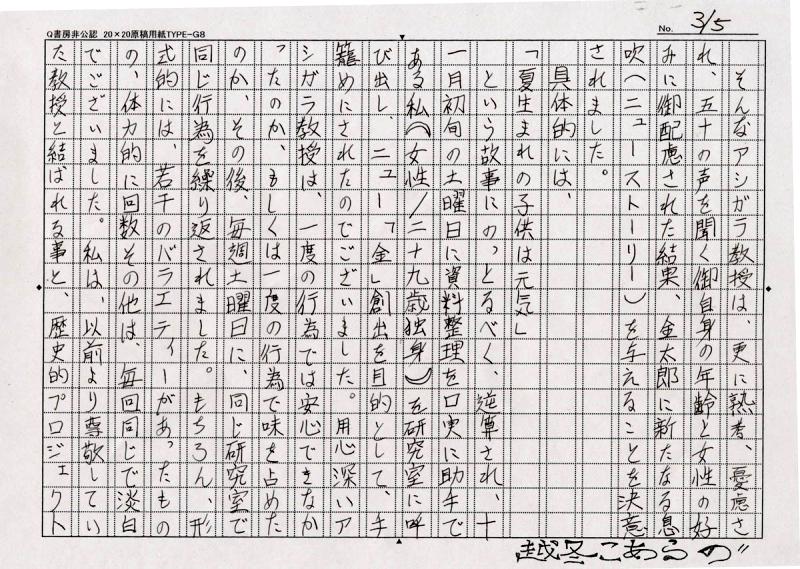 Q書房非公認 20×20原稿用紙TYPE-G8
No. 3/5
そんなアシガラ教授は、更に熟考、憂慮さ
れ、五十の声を聞く御自身の年齢と女性の好
みに御配慮された結果、金太郎に新たなる息
吹(ニューストーリー)を与えることを決意
されました。
具体的には、
「夏生まれの子供は元気」
という故事にのっとるべく、逆算され、十
一月初旬の土曜日に資料整理を口実に助手で
ある私(女性/二十九歳独身)を研究室に呼
び出し、ニュー「金」創出を目的として、手
籠めにされたのでございました。用心深いア
シガラ教授は、一度の行為では安心できなか
ったのか、もしくは一度の行為で味を占めた
のか、その後、毎週土曜日に、同じ研究室で
同じ行為を繰り返されました。もちろん、形
式的には、若干のバラエティーがあったもの
の、体力的に回数その他は、毎回同じで淡白
でございました。私は、以前より尊敬してい
た教授と結ばれる事と、歴史的プロジェクト
越冬こあらの"